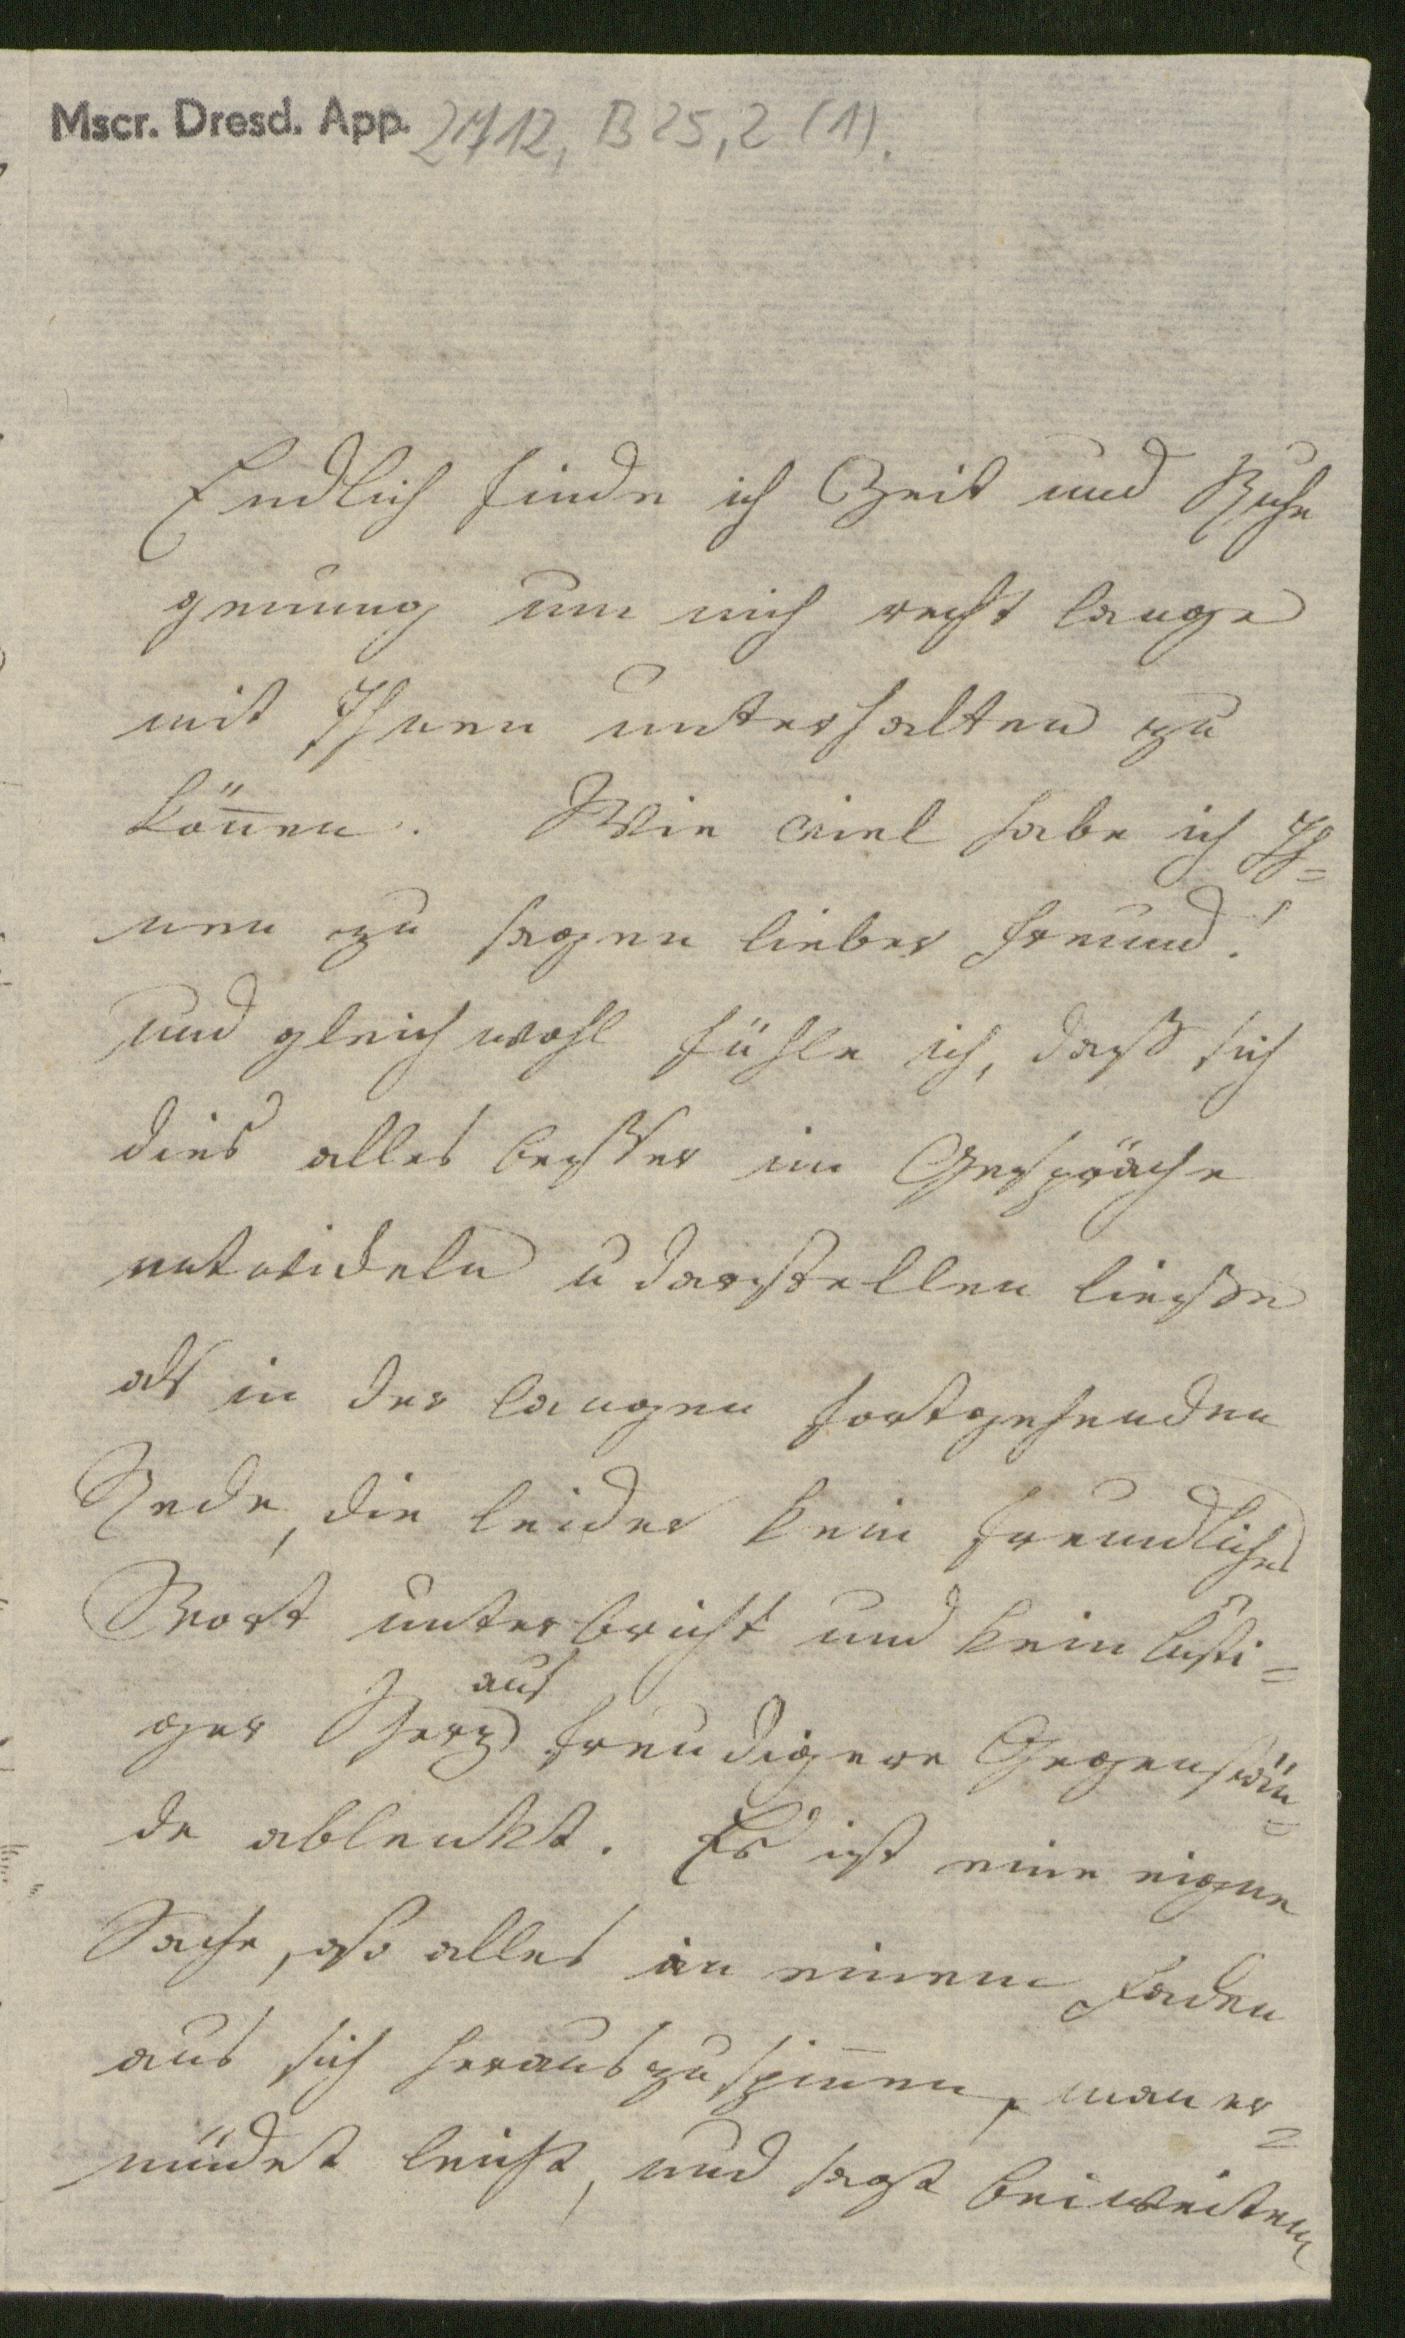 Mscr. Dresd. App. 2712, B 25, 2 (1).
Endlich finde ich Zeit und Ruhe
genung um mich recht lange
mit Ihnen unterhalten zu
können. Wie viel habe ich Ih=
nen zu sagen lieber Freund!
und gleichwohl fühle ich, daß sich
dies alles besser im Gespräche
entwickeln u darstellen ließe
als in der langen fortgehenden
Rede, die leider kein freundliches
Wort unterbricht und kein lusti=
ger Scherz auf freudigere Gegenstän=
de ablenkt. Es ist eine eigne
Sache, so alles in einem Faden
aus sich herauszuspinnen, man er=
müdet leicht, und sagt bei weitem